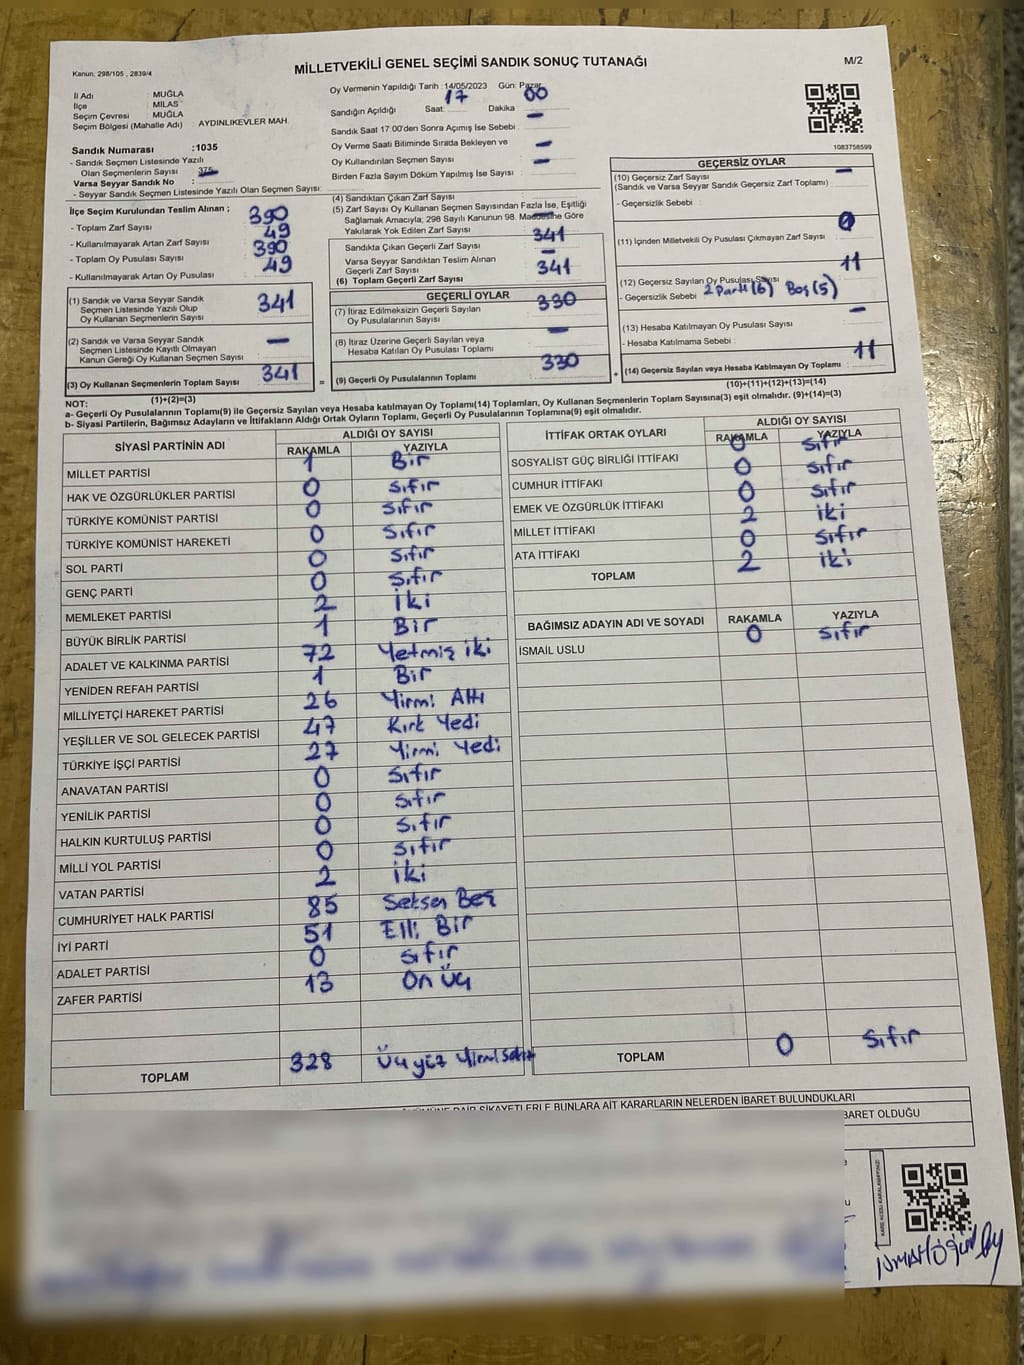 MİLLETVEKİLİ GENEL SEÇİMİ SANDIK SONUÇ TUTANAĞI
M/2
Kanun, 298/105 , 2839/4
İli Adı MUĞLA
İlçe MİLAS
Seçim Çevresi MUĞLA
Seçim Bölgesi (Mahalle Adı) : AYDINLIKEVLER MAH.
Sandık Numarası :1035
- Sandık Seçmen Listesinde Yazılı
Olan Seçmenlerin Sayısı : 375
Varsa Seyyar Sandık No :
- Seyyar Sandık Seçmen Listesinde Yazılı Olan Seçmen Sayısı:
Oy Vermenin Yapıldığı Tarih :14/05/2023 Gün: Pazar
Sandığın Açıldığı Saat: 17 Dakika 00
Sandık Saat 17:00'den Sonra Açımış İse Sebebi : -
Oy Verme Saati Bitiminde Sırada Bekleyen ve
Oy Kullandırılan Seçmen Sayısı -
Birden Fazla Sayım Döküm Yapılmış İse Sayısı : -
1083758599
İlçe Seçim Kurulundan Teslim Alınan ;
- Toplam Zarf Sayısı 390
- Kullanılmayarak Artan Zarf Sayısı 49
- Toplam Oy Pusulası Sayısı 390
- Kullanılmayarak Artan Oy Pusulası 49
(1) Sandık ve Varsa Seyyar Sandık
Seçmen Listesinde Yazılı Olup
Oy Kullanan Seçmenlerin Sayısı 341
(2) Sandık ve Varsa Seyyar Sandık
Seçmen Listesinde Kayıtlı Olmayan
Kanun Gereği Oy Kullanan Seçmen Sayısı -
(3) Oy Kullanan Seçmenlerin Toplam Sayısı 341
(1)+(2)=(3)
(4) Sandıktan Çıkan Zarf Sayısı
(5) Zarf Sayısı Oy Kullanan Seçmen Sayısından Fazla İse, Eşitliği
Sağlamak Amacıyla; 298 Sayılı Kanunun 98. Maddesine Göre
Yakılarak Yok Edilen Zarf Sayısı -
Sandıkta Çıkan Geçerli Zarf Sayısı 341
Varsa Seyyar Sandıktan Teslim Alınan
Geçerli Zarf Sayısı -
(6) Toplam Geçerli Zarf Sayısı 341
GEÇERLİ OYLAR
(7) İtiraz Edilmeksizin Geçerli Sayılan
Oy Pusulalarının Sayısı 330
(8) İtiraz Üzerine Geçerli Sayılan veya
Hesaba Katılan Oy Pusulası Toplamı -
= (9) Geçerli Oy Pusulalarının Toplamı 330
GEÇERSİZ OYLAR
(10) Geçersiz Zarf Sayısı
(Sandık ve Varsa Seyyar Sandık Geçersiz Zarf Toplamı) -
- Geçersizlik Sebebi :
(11) İçinden Milletvekili Oy Pusulası Çıkmayan Zarf Sayısı 0
(12) Geçersiz Sayılan Oy Pusulası Sayısı 11
- Geçersizlik Sebebi 2 Parti (6) Boş (5)
(13) Hesaba Katılmayan Oy Pusulası Sayısı -
- Hesaba Katılmama Sebebi :
+ (14) Geçersiz Sayılan veya Hesaba Katılmayan Oy Toplamı 11
(10)+(11)+(12)+(13)=(14)
NOT:
a- Geçerli Oy Pusulalarının Toplamı(9) ile Geçersiz Sayılan veya Hesaba katılmayan Oy Toplamı(14) Toplamları, Oy Kullanan Seçmenlerin Toplam Sayısına(3) eşit olmalıdır. (9)+(14)=(3)
b- Siyasi Partilerin, Bağımsız Adayların ve İttifakların Aldığı Ortak Oyların Toplamı, Geçerli Oy Pusulalarının Toplamına(9) eşit olmalıdır.
SİYASİ PARTİNİN ADI ALDIĞI OY SAYISI
RAKAMLA YAZIYLA
MİLLET PARTİSİ 1 Bir
HAK VE ÖZGÜRLÜKLER PARTİSİ 0 Sıfır
TÜRKİYE KOMÜNİST PARTİSİ 0 Sıfır
TÜRKİYE KOMÜNİST HAREKETİ 0 Sıfır
SOL PARTİ 0 Sıfır
GENÇ PARTİ 0 Sıfır
MEMLEKET PARTİSİ 2 İki
BÜYÜK BİRLİK PARTİSİ 1 Bir
ADALET VE KALKINMA PARTİSİ 72 Yetmiş iki
YENİDEN REFAH PARTİSİ 1 Bir
MİLLİYETÇİ HAREKET PARTİSİ 26 Yirmi Altı
YEŞİLLER VE SOL GELECEK PARTİSİ 47 Kırk Yedi
TÜRKİYE İŞÇİ PARTİSİ 27 Yirmi Yedi
ANAVATAN PARTİSİ 0 Sıfır
YENİLİK PARTİSİ 0 Sıfır
HALKIN KURTULUŞ PARTİSİ 0 Sıfır
MİLLİ YOL PARTİSİ 0 Sıfır
VATAN PARTİSİ 2 İki
CUMHURİYET HALK PARTİSİ 85 Seksen Beş
İYİ PARTİ 51 Elli Bir
ADALET PARTİSİ 0 Sıfır
ZAFER PARTİSİ 13 On Üç
TOPLAM 328 Üç yüz Yirmi Sekiz
İTTİFAK ORTAK OYLARI ALDIĞI OY SAYISI
RAKAMLA YAZIYLA
SOSYALİST GÜÇ BİRLİĞİ İTTİFAKI 0 Sıfır
CUMHUR İTTİFAKI 0 Sıfır
EMEK VE ÖZGÜRLÜK İTTİFAKI 0 Sıfır
MİLLET İTTİFAKI 2 İki
ATA İTTİFAKI 0 Sıfır
TOPLAM 2 İki
BAĞIMSIZ ADAYIN ADI VE SOYADI RAKAMLA YAZIYLA
İSMAİL USLU 0 Sıfır
TOPLAM 0 Sıfır
DAİR ŞİKAYETLERLE BUNLARA AİT KARARLARIN NELERDEN İBARET BULUNDUKLARI
İBARET OLDUĞU